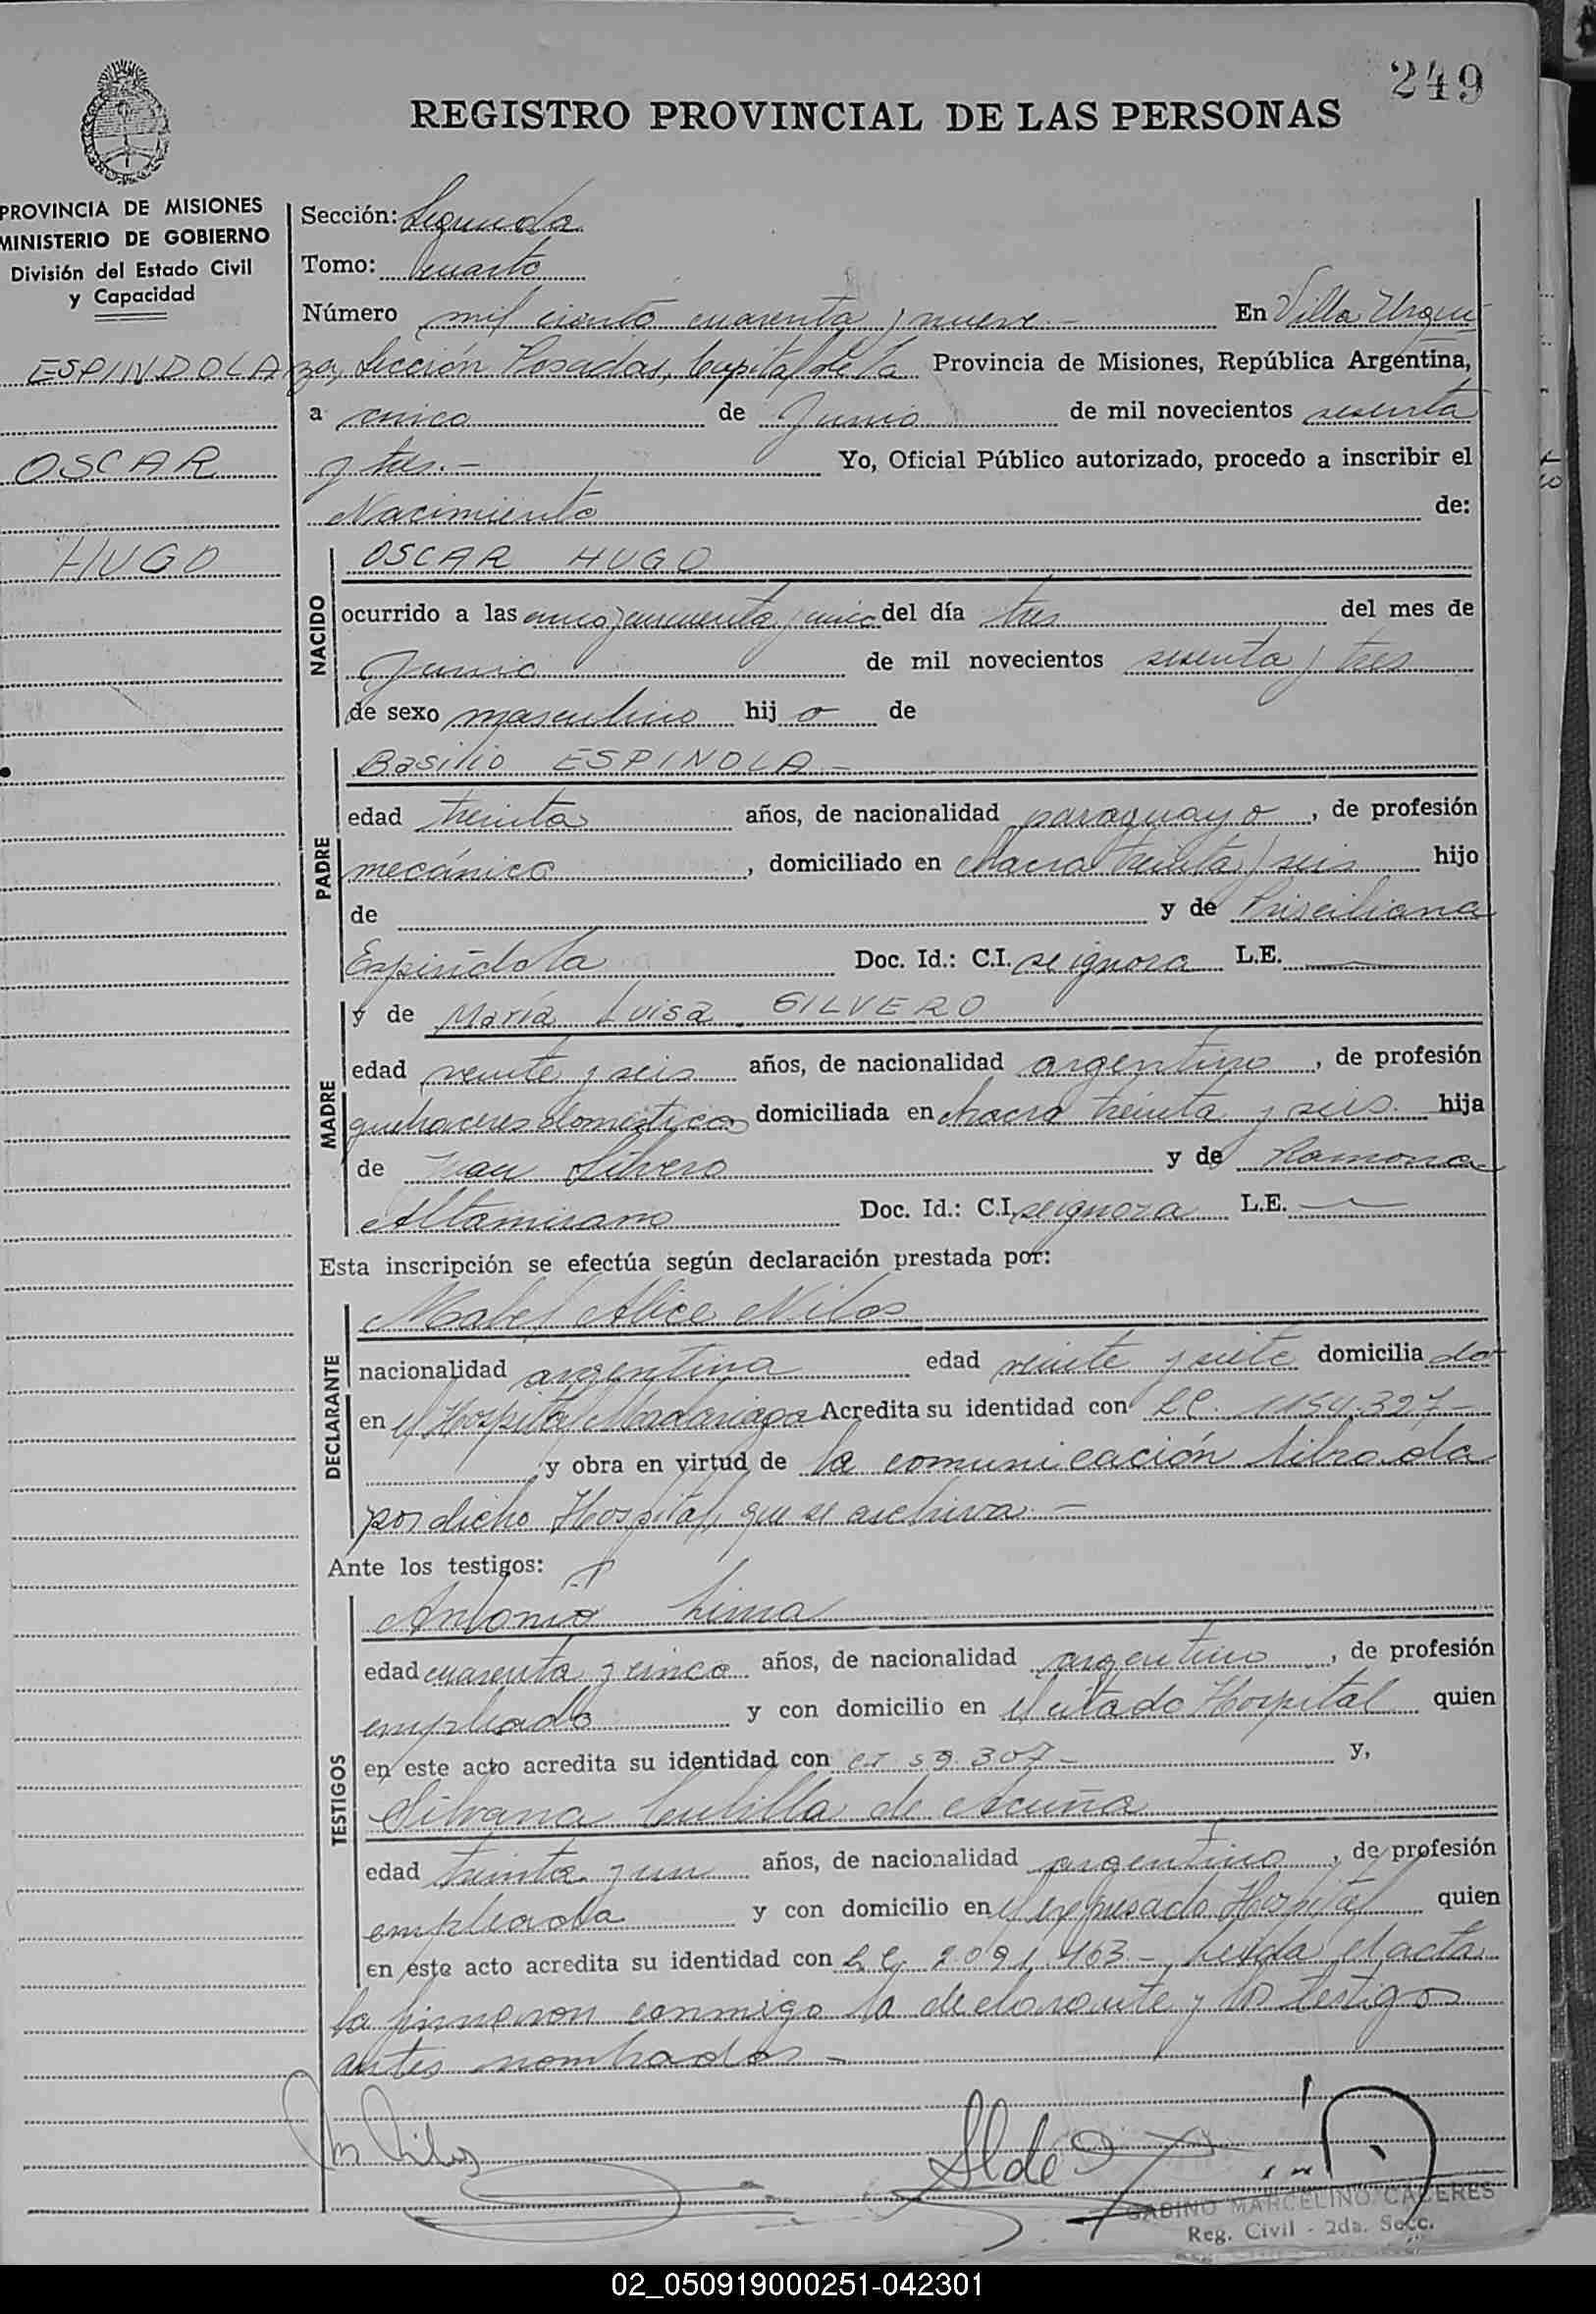 249
REGISTRO PROVINCIAL DE LAS PERSONAS
PROVINCIA DE MISIONES
MINISTERIO DE GOBIERNO
División del Estado Civil
y Capacidad
ESPINDOLA
OSCAR
HUGO
Sección: Segunda
Tomo: Cuarto
Número mil ciento cuarenta y nueve.- En Villa Urqui
za, Sección Posadas, Capital de la Provincia de Misiones, República Argentina,
a cinco de Junio de mil novecientos sesenta
y tres.- Yo, Oficial Público autorizado, procedo a inscribir el
Nacimiento de:
NACIDO
OSCAR HUGO
ocurrido a las cinco y cincuenta y cinco del día tres del mes de
Junio de mil novecientos sesenta y tres
de sexo masculino hij o de
PADRE
Basilio ESPINOLA -
edad treinta años, de nacionalidad paraguayo, de profesión
mecánico, domiciliado en chacra treinta y seis hijo
de y de Prisciliana
Espíndola Doc. Id.: C.I. se ignora L.E. —
MADRE
y de María Luisa SILVERO
edad veinte y seis años, de nacionalidad argentino, de profesión
quehaceres domésticos domiciliada en chacra treinta y seis. hija
de Juan Silvero y de Ramona
Altamirano Doc. Id.: C.I. se ignora L.E. —
Esta inscripción se efectúa según declaración prestada por:
DECLARANTE
Mabel Alice Nilos
nacionalidad argentina edad veinte y siete domicilia do
en el Hospital Madariaga Acredita su identidad con L.C. 1154.327-
y obra en virtud de la comunicación librada
por dicho Hospital, que se archiva.-
Ante los testigos:
TESTIGOS
Antonio Lima
edad cuarenta y cinco años, de nacionalidad argentino, de profesión
empleado y con domicilio en el citado Hospital quien
en este acto acredita su identidad con C.I. 59.307- y,
Silvana de Acuña
edad treinta y un años, de nacionalidad argentino, de profesión
empleada y con domicilio en el expresado Hospital quien
en este acto acredita su identidad con L.C. 2.091.463- Leída el acta
la firmaron conmigo la declarante y los testigos
antes nombrados-
GABINO MARCELINO CACERES
Reg. Civil - 2da. Secc.
02_050919000251-042301